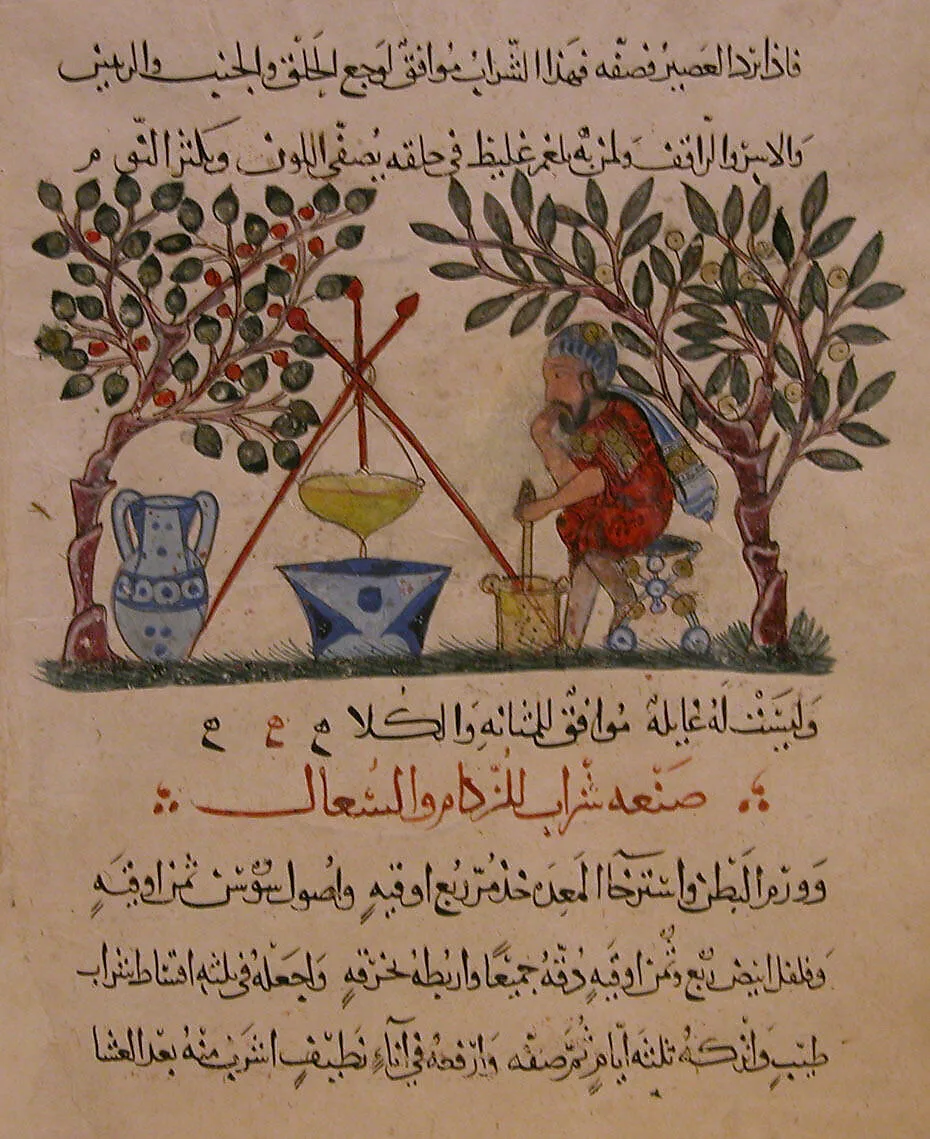 فاذا برد العصير فصفّه فهذا الشّراب مُوافقٌ لوجع الحَلْق والجنب والريتين
والا والرّاقف ولمن به بلغم غليظ فى حلقه يُصفّى اللون ويكثر النّوم
وَليسَتْ لَهُ غايلة مُوافقٌ للمثانه وَالكُلا
صَنْعه شَراب للزّكام والسّعال
وَوَرم البَطن واسترخآ المَعِدَه خذ مُرّ ربع اوقيهٍ واصُول سُوْسَن ثمن اوقيَهٍ
وَفلفل ابيض ربع وثُمن اوقيَهٍ دُقّهُ جميْعًا واربطهُ بخرقهٍ وَاجعَلهُ فى ثلثه اقساط شراب
طيّبٍ وَاتركهُ ثلثه ايّامٍ ثمّ صفّه وَارفعهُ فى اناءٍ نَظيْفٍ اشرب منْهُ بعْد العَشا